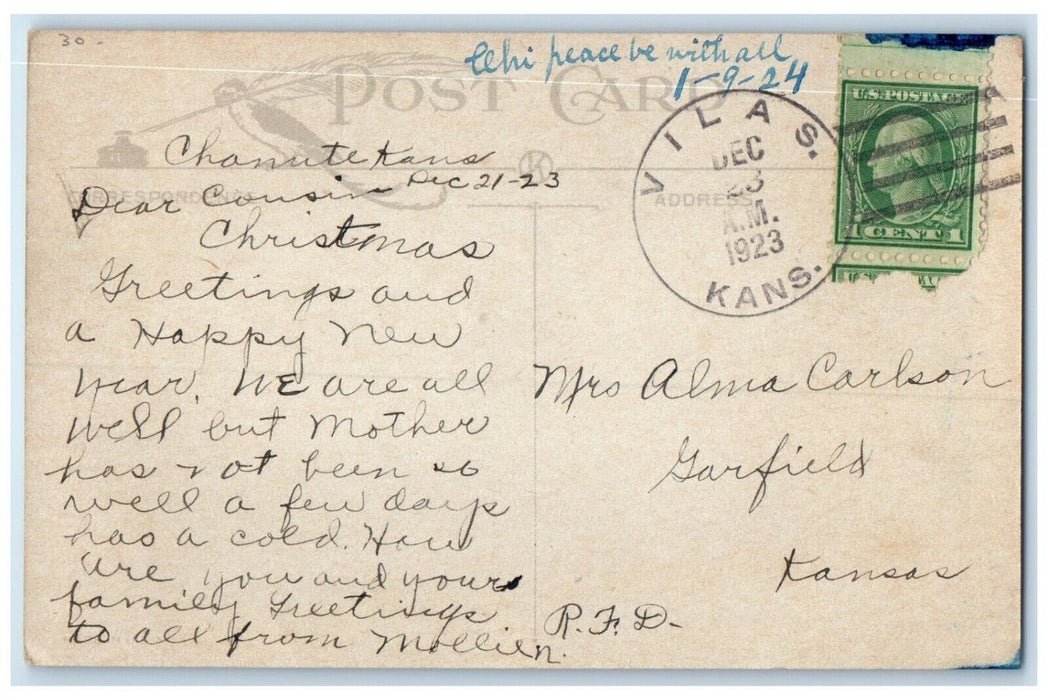 30-
peace be with all
1-9-24
POST CARD
U.S. POSTAGE
1 CENT 1
VILAS.
DEC
23
A.M.
1923
KANS.
CORRESPONDENCE
ADDRESS
K
Chanute Kans
Dec 21-23
Dear Cousin
Christmas
Greetings and
a Happy New
Year. We are all
well but Mother
has not been so
well a few days
has a cold. How
are you and your
family Greetings
to all from
Mrs Alma Carlson
Garfield
Kansas
R.F.D-